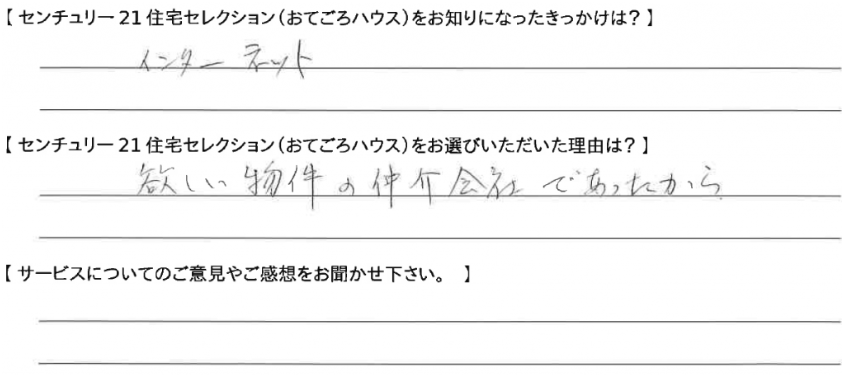 【 センチュリー 21 住宅セレクション（おてごろハウス）をお知りになったきっかけは？ 】
インターネット
【 センチュリー 21 住宅セレクション（おてごろハウス）をお選びいただいた理由は？ 】
欲しい物件の仲介会社であったから
【 サービスについてのご意見やご感想をお聞かせ下さい。 】